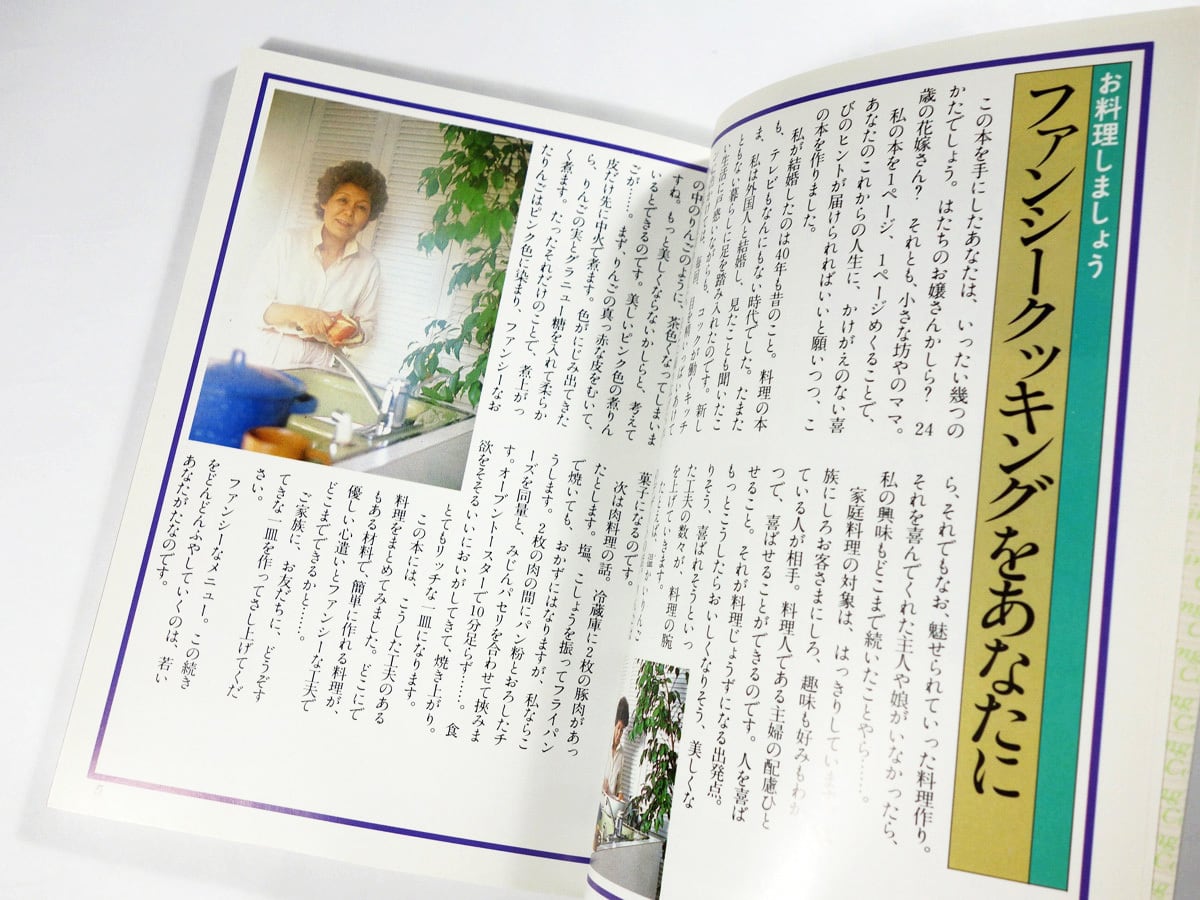 お料理しましょう
ファンシークッキングをあなたに
この本を手にしたあなたは、いったい幾つの
かたでしょう。はたちのお嬢さんかしら？　24
歳の花嫁さん？　それとも、小さな坊やのママ。
私の本を1ページ、1ページめくることで、
あなたのこれからの人生に、かけがえのない喜
びのヒントが届けられればいいと願いつつ、こ
の本を作りました。
私が結婚したのは40年も昔のこと。料理の本
も、テレビもなんにもない時代でした。たまた
ま、私は外国人と結婚し、見たことも聞いたこ
ともない暮らしに足を踏み入れたのです。新し
い生活に戸惑いながらも、コックが働くキッチ
ら、それでもなお、魅せられていった料理作り。
それを喜んでくれた主人や娘がいなかったら、
私の興味もどこまで続いたことやら……。
家庭料理の対象は、はっきりしていま
族にしろお客さまにしろ、趣味も好みもわか
ている人が相手。料理人である主婦の配慮ひと
つで、喜ばせることができるのです。人を喜ば
せること。それが料理じょうずになる出発点。
もっとこうしたらおいしくなりそう、美しくな
りそう、喜ばれそうといっ
た工夫の数々が、料理の腕
を上げていきます。
の中のりんごのように、茶色くなってしまいま
すね。もっと美しくならないかしらと、考えて
いるとできるのです。美しいピンク色の煮りん
ごが……。まず、りんごの真っ赤な皮をむいて、
皮だけ先に中火で煮ます。色がにじみ出てきた
ら、りんごの実とグラニュー糖を入れて柔らか
く煮ます。たったそれだけのことで、煮上がっ
たりんごはピンク色に染まり、ファンシーなお
菓子になるのです。
次は肉料理の話。冷蔵庫に2枚の豚肉があっ
たとします。塩、こしょうを振ってフライパン
で焼いても、おかずにはなりますが、私ならこ
うします。2枚の肉の間にパン粉とおろしたチ
ーズを同量と、みじんパセリを合わせて挟みま
す。オーブントースターで10分足らず……。食
欲をそそるいいにおいがしてきて、焼き上がり。
とてもリッチな一皿になります。
この本には、こうした工夫のある
料理をまとめてみました。どこにで
もある材料で、簡単に作れる料理が、
優しい心遣いとファンシーな工夫で
どこまでできるかと……。
ご家族に、お友だちに、どうぞす
てきな一皿を作ってさし上げてくだ
さい。
ファンシーなメニュー。この続き
をどんどんふやしていくのは、若い
あなたがたなのです。